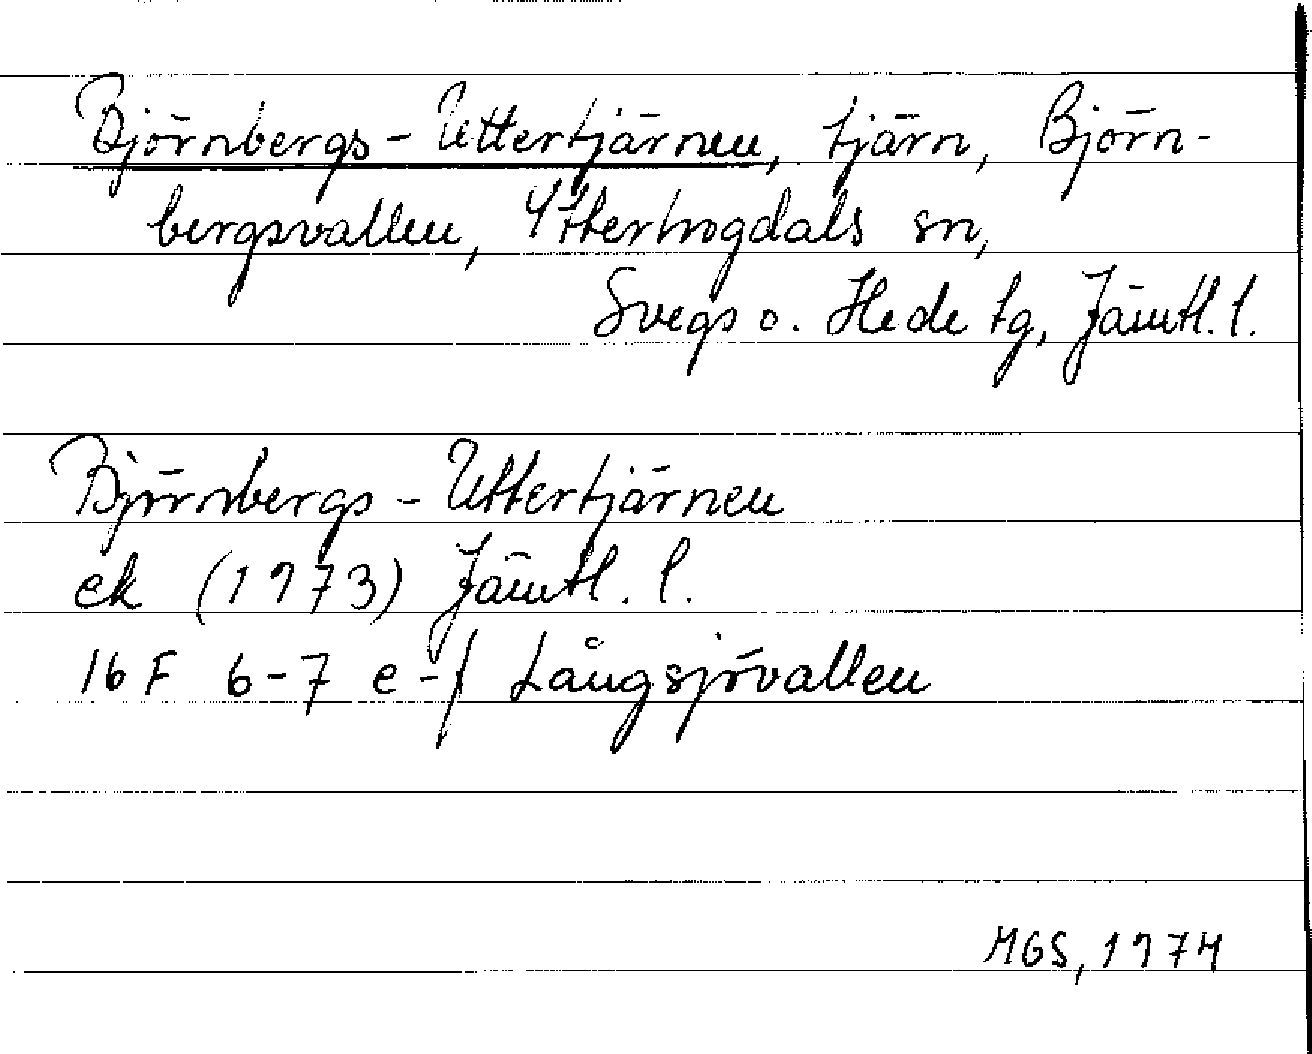 Björnbergs-Uttertjärnen, tjärn, Björn-
bergsvallen, Ytterhogdals sn,
Svegs o. Hede tg, Jämtl. l.
Björnbergs-Uttertjärnen
ek (1973) Jämtl. l.
16 F 6-7 e-f Långsjövallen
MGS, 1974